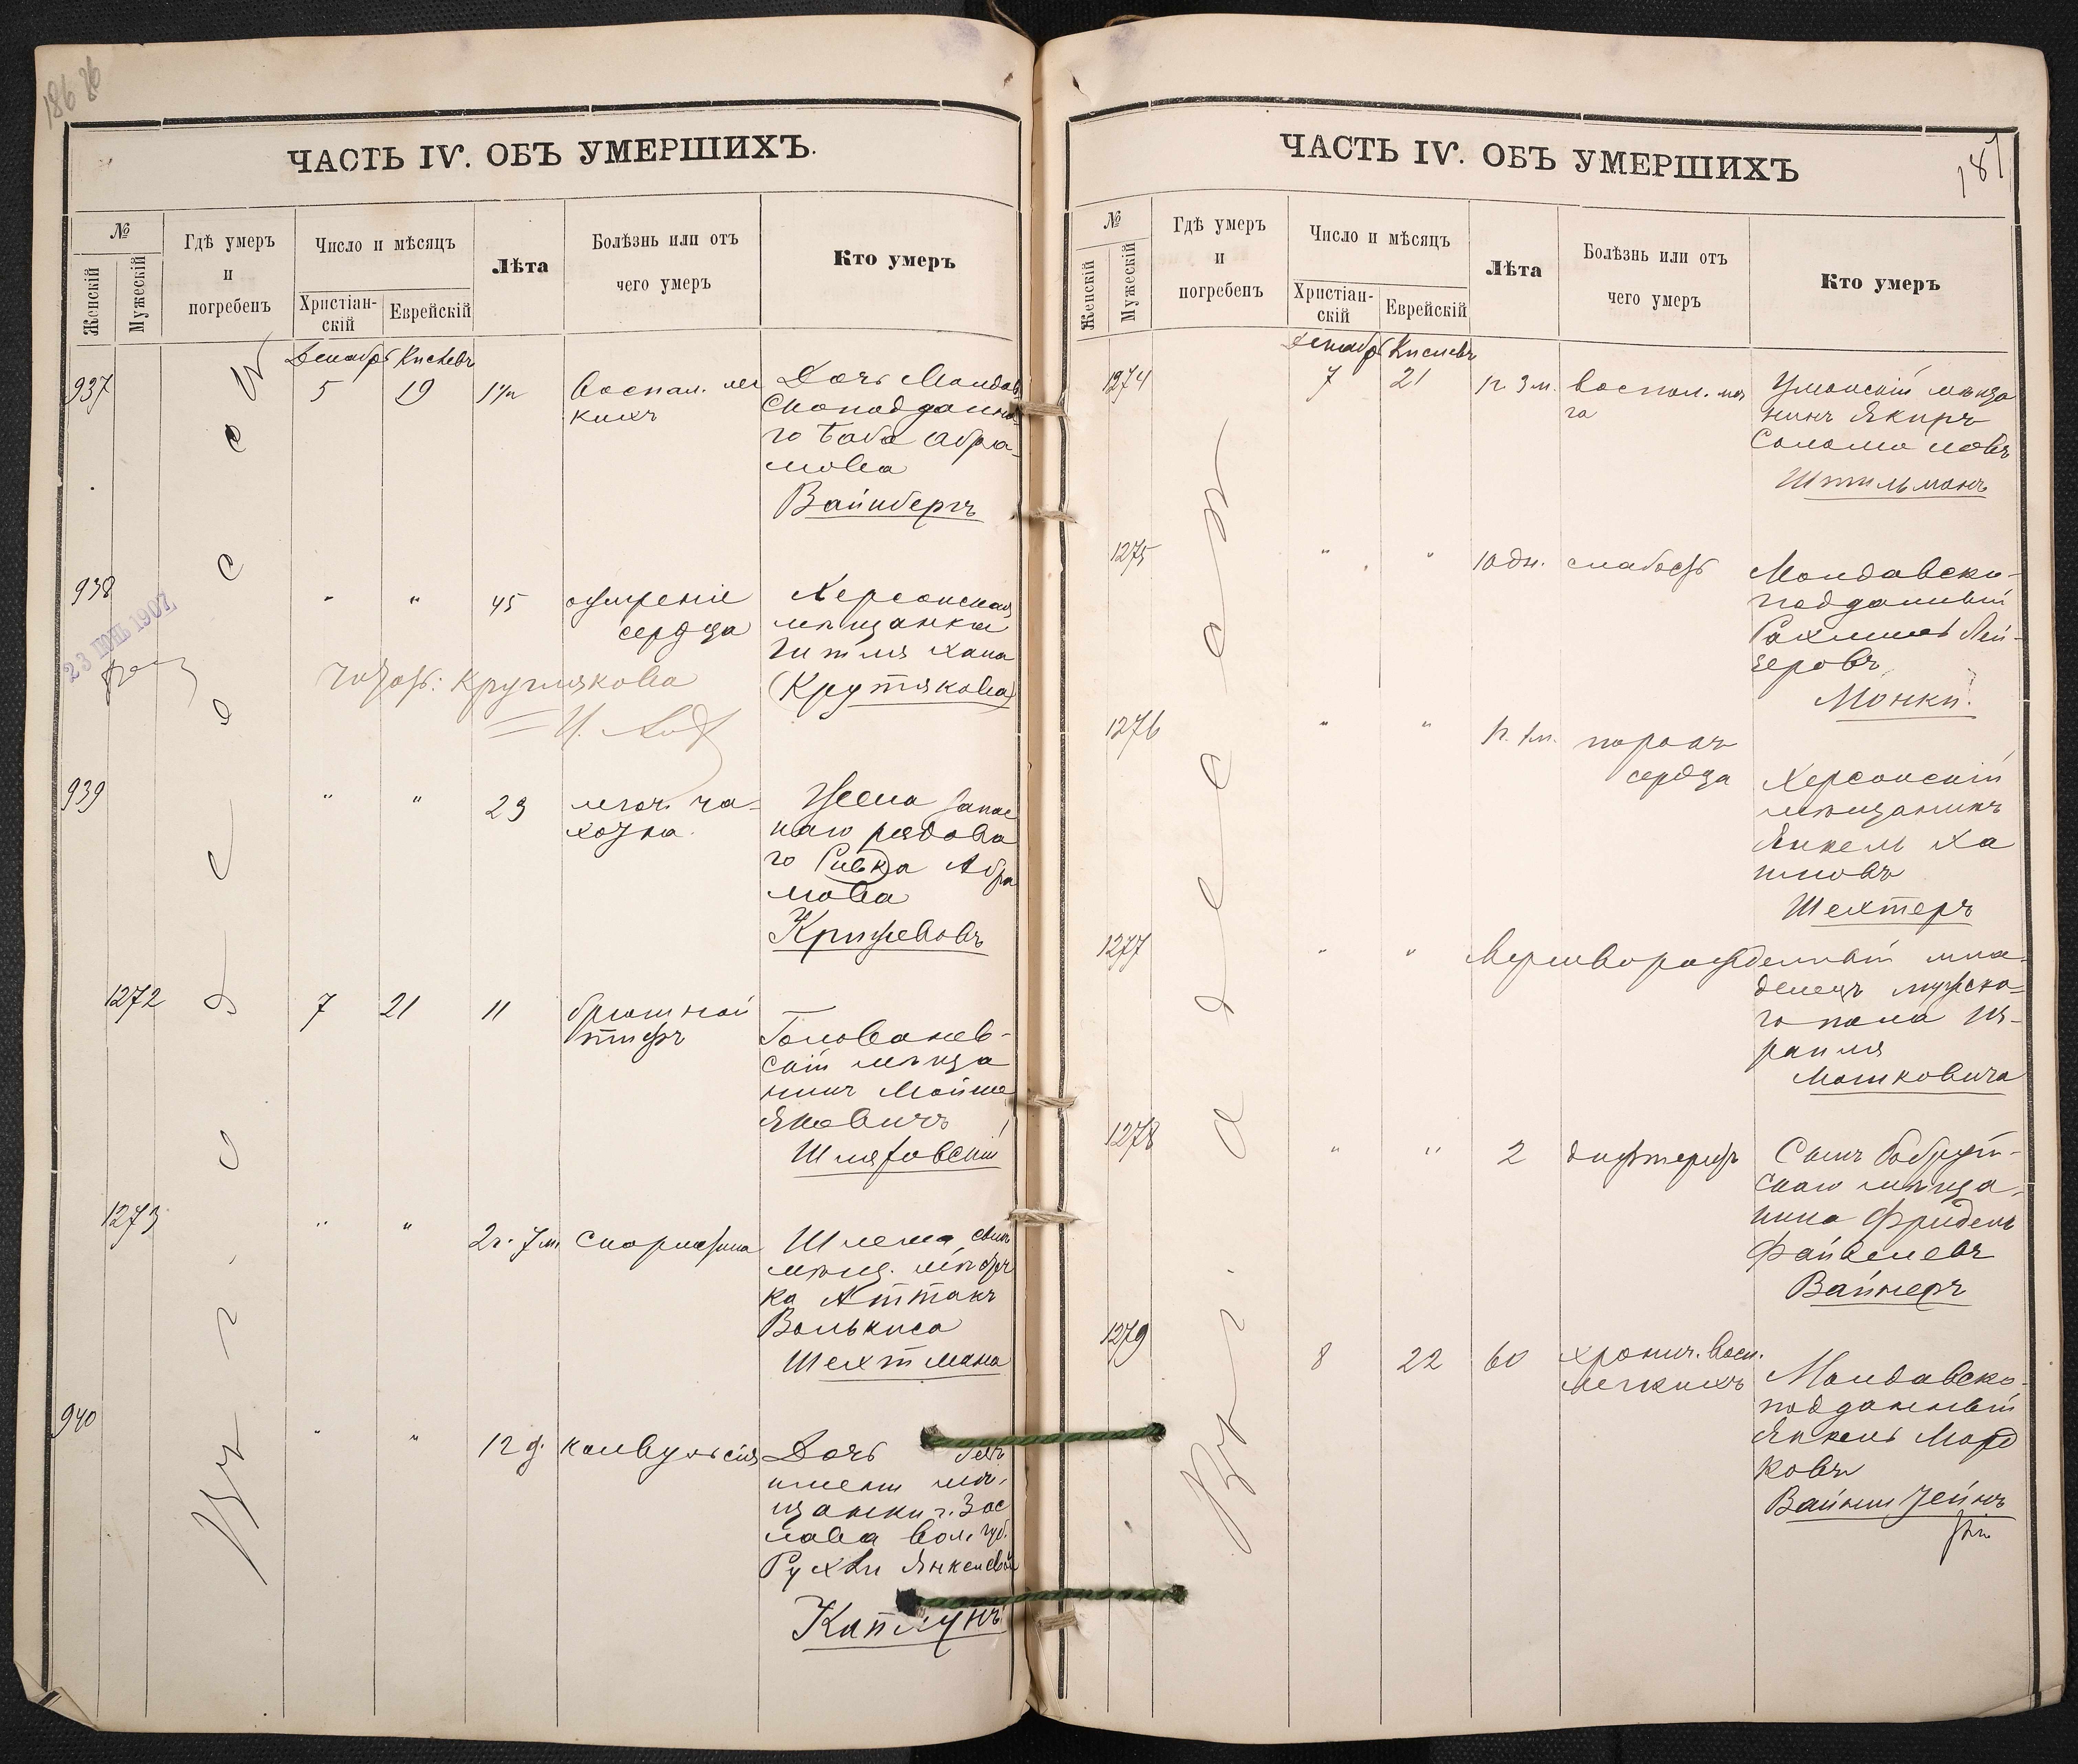 186
ЧАСТЬ IV. ОБЪ УМЕРШИХЪ.
№
Женскій
Мужескій
Гдѣ умеръ
и
погребенъ
Число и мѣсяцъ
Христіан-
скій
Еврейскій
Лѣта
Болѣзнь или отъ
чего умеръ
Кто умеръ
Въ г. Одессѣ
Декабрь Кислевъ
937 5 19 воспал. лег
кихъ
Дочь Молдав
скоподданна-
го Абра-
мова
Вайнбергъ
938 " " 45
сердца
Херсонская
мѣщанка
Гитля Хана
(Крутякова)
23 1907
Крутлякова
939 " " 23 легоч. ча-
хотка.
Жена запас
наго рядова
го Сивка Абра
мова
Крижевовъ
1272 7 21 11 брюшной
тифъ
Голованев-
скій мѣща
нинъ Мойше
Яновичъ
1273 " " 2 г. 7 м. скарлатина
Шлема, сынъ
мѣщ.
ка
Волькиса
Шехтмана
940 " " 12 д. конвульсія
Дочь безъ
имени мѣ-
щанки г. Зас
лава Вол. губ.
Рухли Янкелевой
Каплунъ
187
ЧАСТЬ IV. ОБЪ УМЕРШИХЪ
№
Женскій
Мужескій
Гдѣ умеръ
и
погребенъ
Число и мѣсяцъ
Христіан-
скій
Еврейскій
Лѣта
Болѣзнь или отъ
чего умеръ
Кто умеръ
Въ г. Одессѣ
Декабрь Кислевъ
1274 7 21 1 г. 3 м. воспал. моз
га
Уманскій мѣща
нинъ Якиръ
Соломоновъ
Штильманъ
1275 " " 10 дн. слабость
Молдавско-
подданный
Рахмиль Лей-
зеровъ
1276 " " порокъ
сердца
Херсонскій
мѣщанинъ
Янкель Ха
имовъ
Шехтеръ
1277 " " Мертворожденный мла-
денецъ мужска-
го пола Из-
раиля
Мошковича
1278 " " 2 дифтеритъ
Сынъ Бобруй-
скаго мѣща-
нина Фридель
Файвелевъ
Вайнеръ
1279 8 22 60 хронич. восп.
легкихъ
Молдавско-
подданный
Янкель Морд
ковъ
Вайнштейнъ